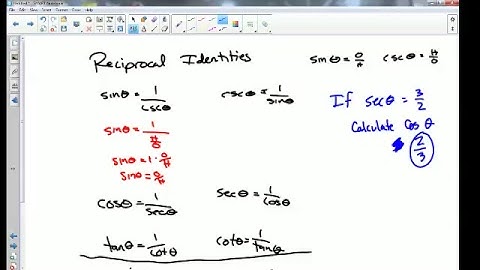 Reciprocal Identities
sinθ = O/H cscθ = H/O
sinθ = 1/cscθ
cscθ = 1/sinθ
If secθ = 3/2
Calculate Cos θ
2/3
sinθ = 1/(H/O)
sinθ = 1·O/H
sinθ = O/H
cosθ = 1/secθ
secθ = 1/cosθ
tanθ = 1/cotθ
cotθ = 1/tanθ